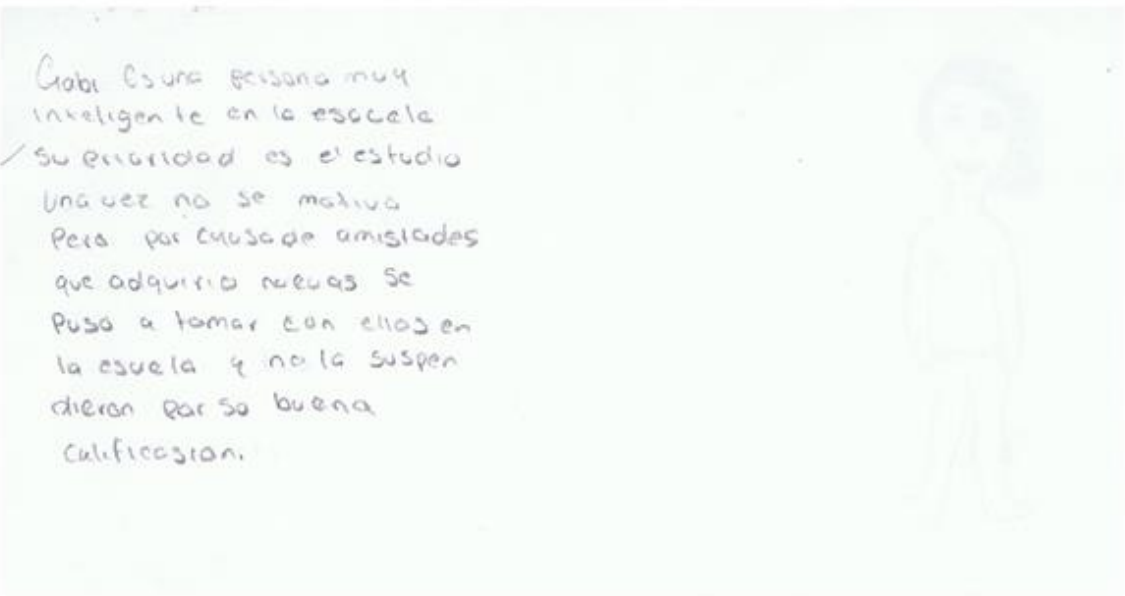 Gabi Es una persona muy
inteligente en la escuela
su prioridad es el estudio
una vez no se motivo
Pero por causa de amistades
que adquirio nuevas se
puso a tomar con ellos en
la esuela y no la suspen
dieron por su buena
calificasion.